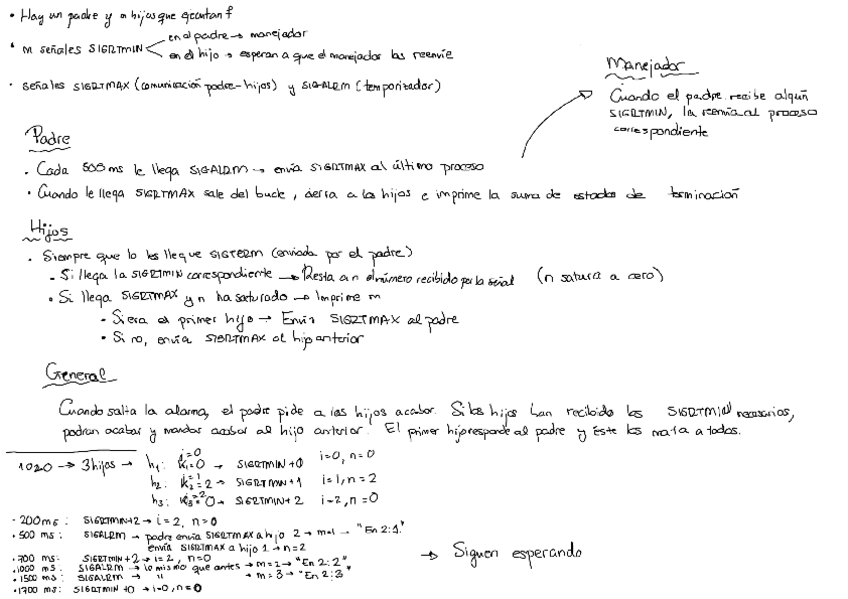 • Hay un padre y m hijos que ejecutan f
• m señales SIGRTMIN
en el padre → manejador
en el hijo → esperan a que el manejador las reenvíe
• señales SIGRTMAX (comunicación padre-hijos) y SIGALRM (temporizador)
Manejador
Cuando el padre recibe algún
SIGRTMIN, la reenvía al proceso
correspondiente
Padre
• Cada 500 ms le llega SIGALRM → envía SIGRTMAX al último proceso
• Cuando le llega SIGRTMAX sale del bucle, cierra a los hijos e imprime la suma de estados de terminación
Hijos
• Siempre que no les llegue SIGTERM (enviada por el padre)
• Si llega la SIGRTMIN correspondiente → Resta a n el número recibido por la señal (n satura a cero)
• Si llega SIGRTMAX y n ha saturado → Imprime m
• Si era el primer hijo → Envía SIGRTMAX al padre
• Si no, envía SIGRTMAX al hijo anterior
General
Cuando salta la alarma, el padre pide a los hijos acabar. Si los hijos han recibido los SIGRTMIN necesarios,
podrán acabar y mandar acabar al hijo anterior. El primer hijo responde al padre y éste los mata a todos.
1020 → 3 hijos →
h1: i=0 k1=0 → SIGRTMIN+0 i=0, n=0
h2: i=1 k2=2 → SIGRTMIN+1 i=1, n=2
h3: i=2 k3=0 → SIGRTMIN+2 i=2, n=0
• 200 ms: SIGRTMIN+2 → i=2, n=0
• 500 ms: SIGALRM → padre envía SIGRTMAX a hijo 2 → m=1 → "En 2:1"
envía SIGRTMAX a hijo 1 → n=2
• 700 ms: SIGRTMIN+2 → i=2, n=0
• 1000 ms: SIGALRM → lo mismo que antes → m=2 → "En 2:2"
• 1500 ms: SIGALRM → " → m=3 → "En 2:3"
• 1700 ms: SIGRTMIN+0 → i=0, n=0
→ Siguen esperando